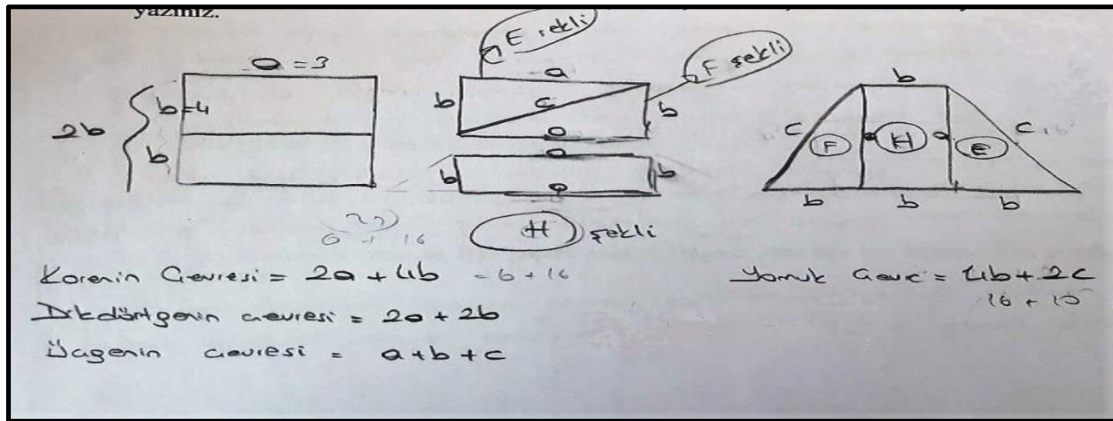 yazınız.
a = 3
2b
b=4
b
E şekli
F şekli
a
b
c
b
a
a
b
b
a
H şekli
b
c
F
a
H
a
E
c
b
b
b
6 + 16
Karenin Çevresi = 2a + 4b = 6 + 16
Dikdörtgenin çevresi = 2a + 2b
Üçgenin çevresi = a+b+c
Yamuk Çevre = 4b + 2c
16 + 10